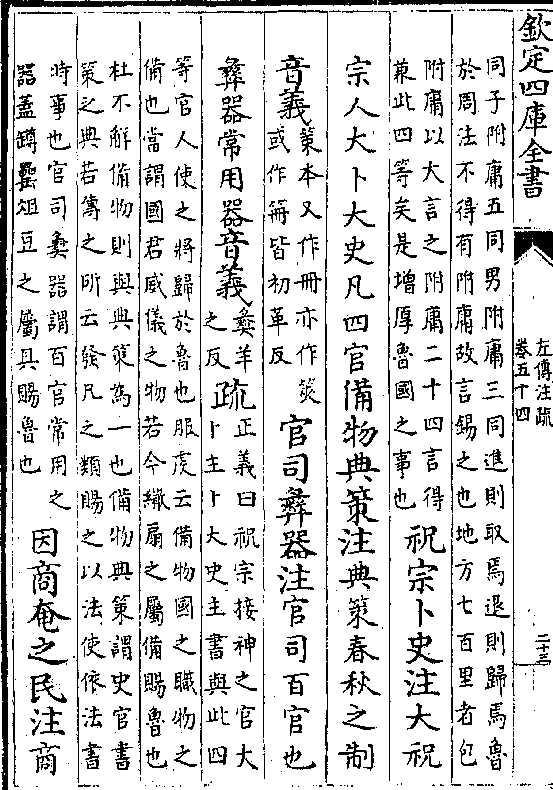 欽定四庫全書
左傳注疏
卷五十四
二十三
同子附庸五同男附庸三同進則取焉退則歸焉魯
於周法不得有附庸故言錫之也地方七百里者包
附庸以大言之附庸二十四言得
兼此四等矣是增厚魯國之事也
祝宗卜史注大祝
宗人大卜大史凡四官備物典策注典策春秋之制
音義
策本又作冊亦作筴
或作笧皆初革反
官司彝器注官司百官也
彝器常用器音義
彝羊
之反
疏
正義曰祝宗接神之官大
卜主卜大史主書與此四
等官人使之將歸於魯也服虔云備物國之職物之
備也當謂國君威儀之物若今繖扇之屬備賜魯也
杜不解備物則與典策為一也備物典策謂史官書
策之典若傳之所云發凡之類賜之以法使依法書
時事也官司彝器謂百官常用之
器蓋罇罍俎豆之屬具賜魯也
因商奄之民注商